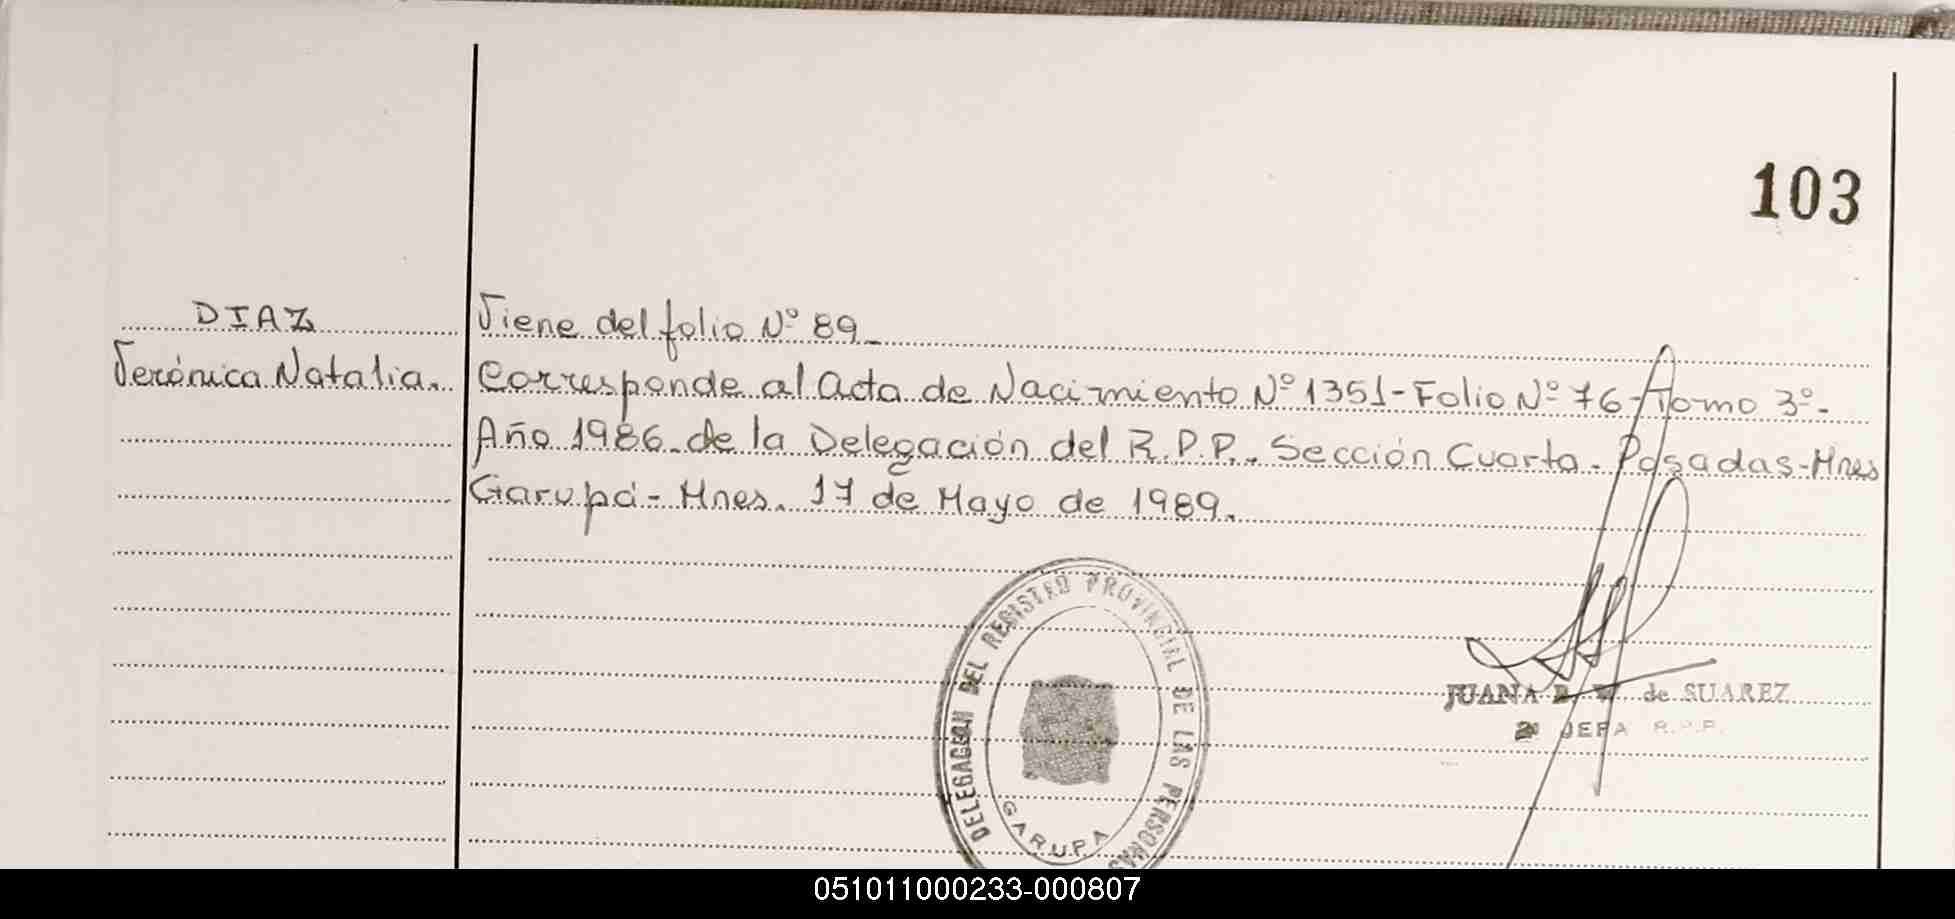 103
DIAZ
Verónica Natalia.
Viene del folio Nº 89_
Corresponde al acta de Nacimiento Nº 1351-Folio Nº 76-Tomo 3º-
Año 1986. de la Delegación del R.P.P. Sección Cuarta. Posadas-Mnes
Garupá-Mnes. 17 de Mayo de 1989.
DELEGACION DEL REGISTRO PROVINCIAL DE LAS PERSONAS
GARUPA
JUANA de SUAREZ
JEFA R.P.P.
051011000233-000807